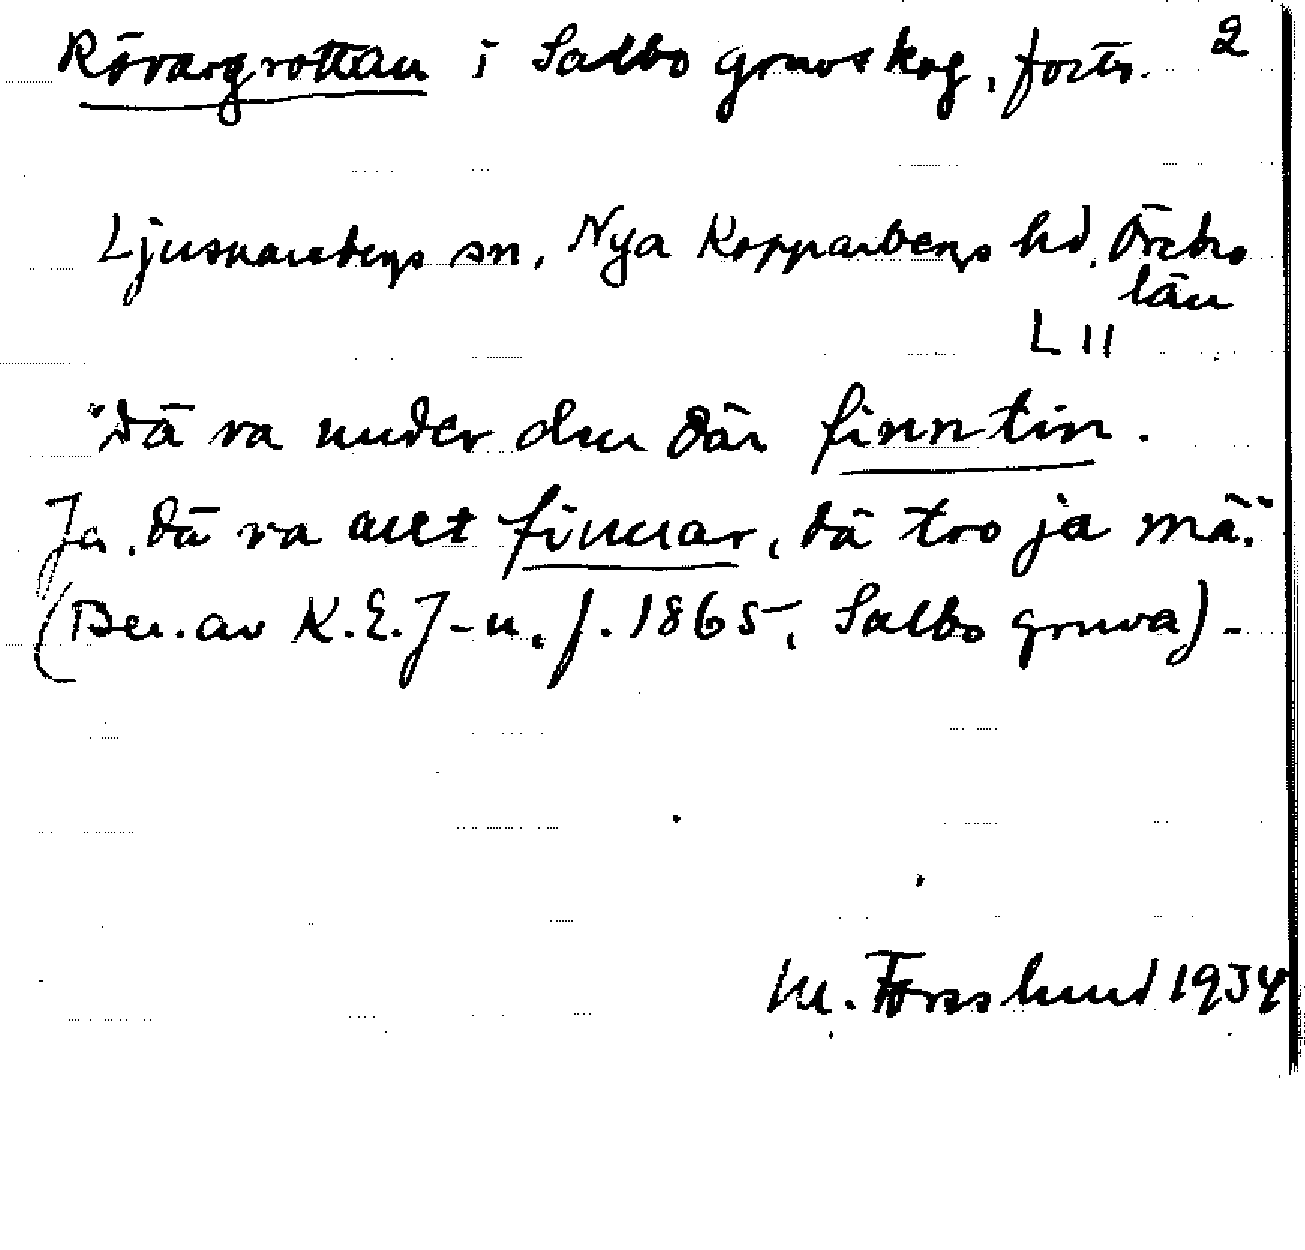 Rövargrottan i Salbo gruvskog, forts. 2
Ljusnarsbergs sn, Nya Kopparbergs hd. Örebro
län
L 11
"Dä va under den där finntin.
Ja, dä va allt finnar, dä tro ja mä."
(Ber. av K.E.J-n. f. 1865, Salbo gruva) -
M. Forslund 1934